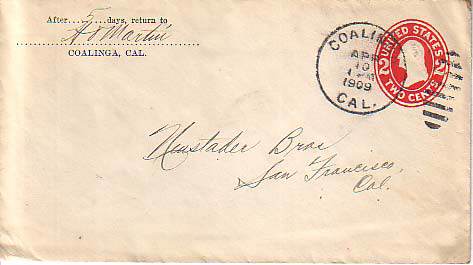 After....5....days, return to
A O Martin
COALINGA, CAL.
COALINGA
APR
10
1909
CAL.
UNITED STATES
2 2
TWO CENTS
Neustader Bros
San Francisco,
Cal.